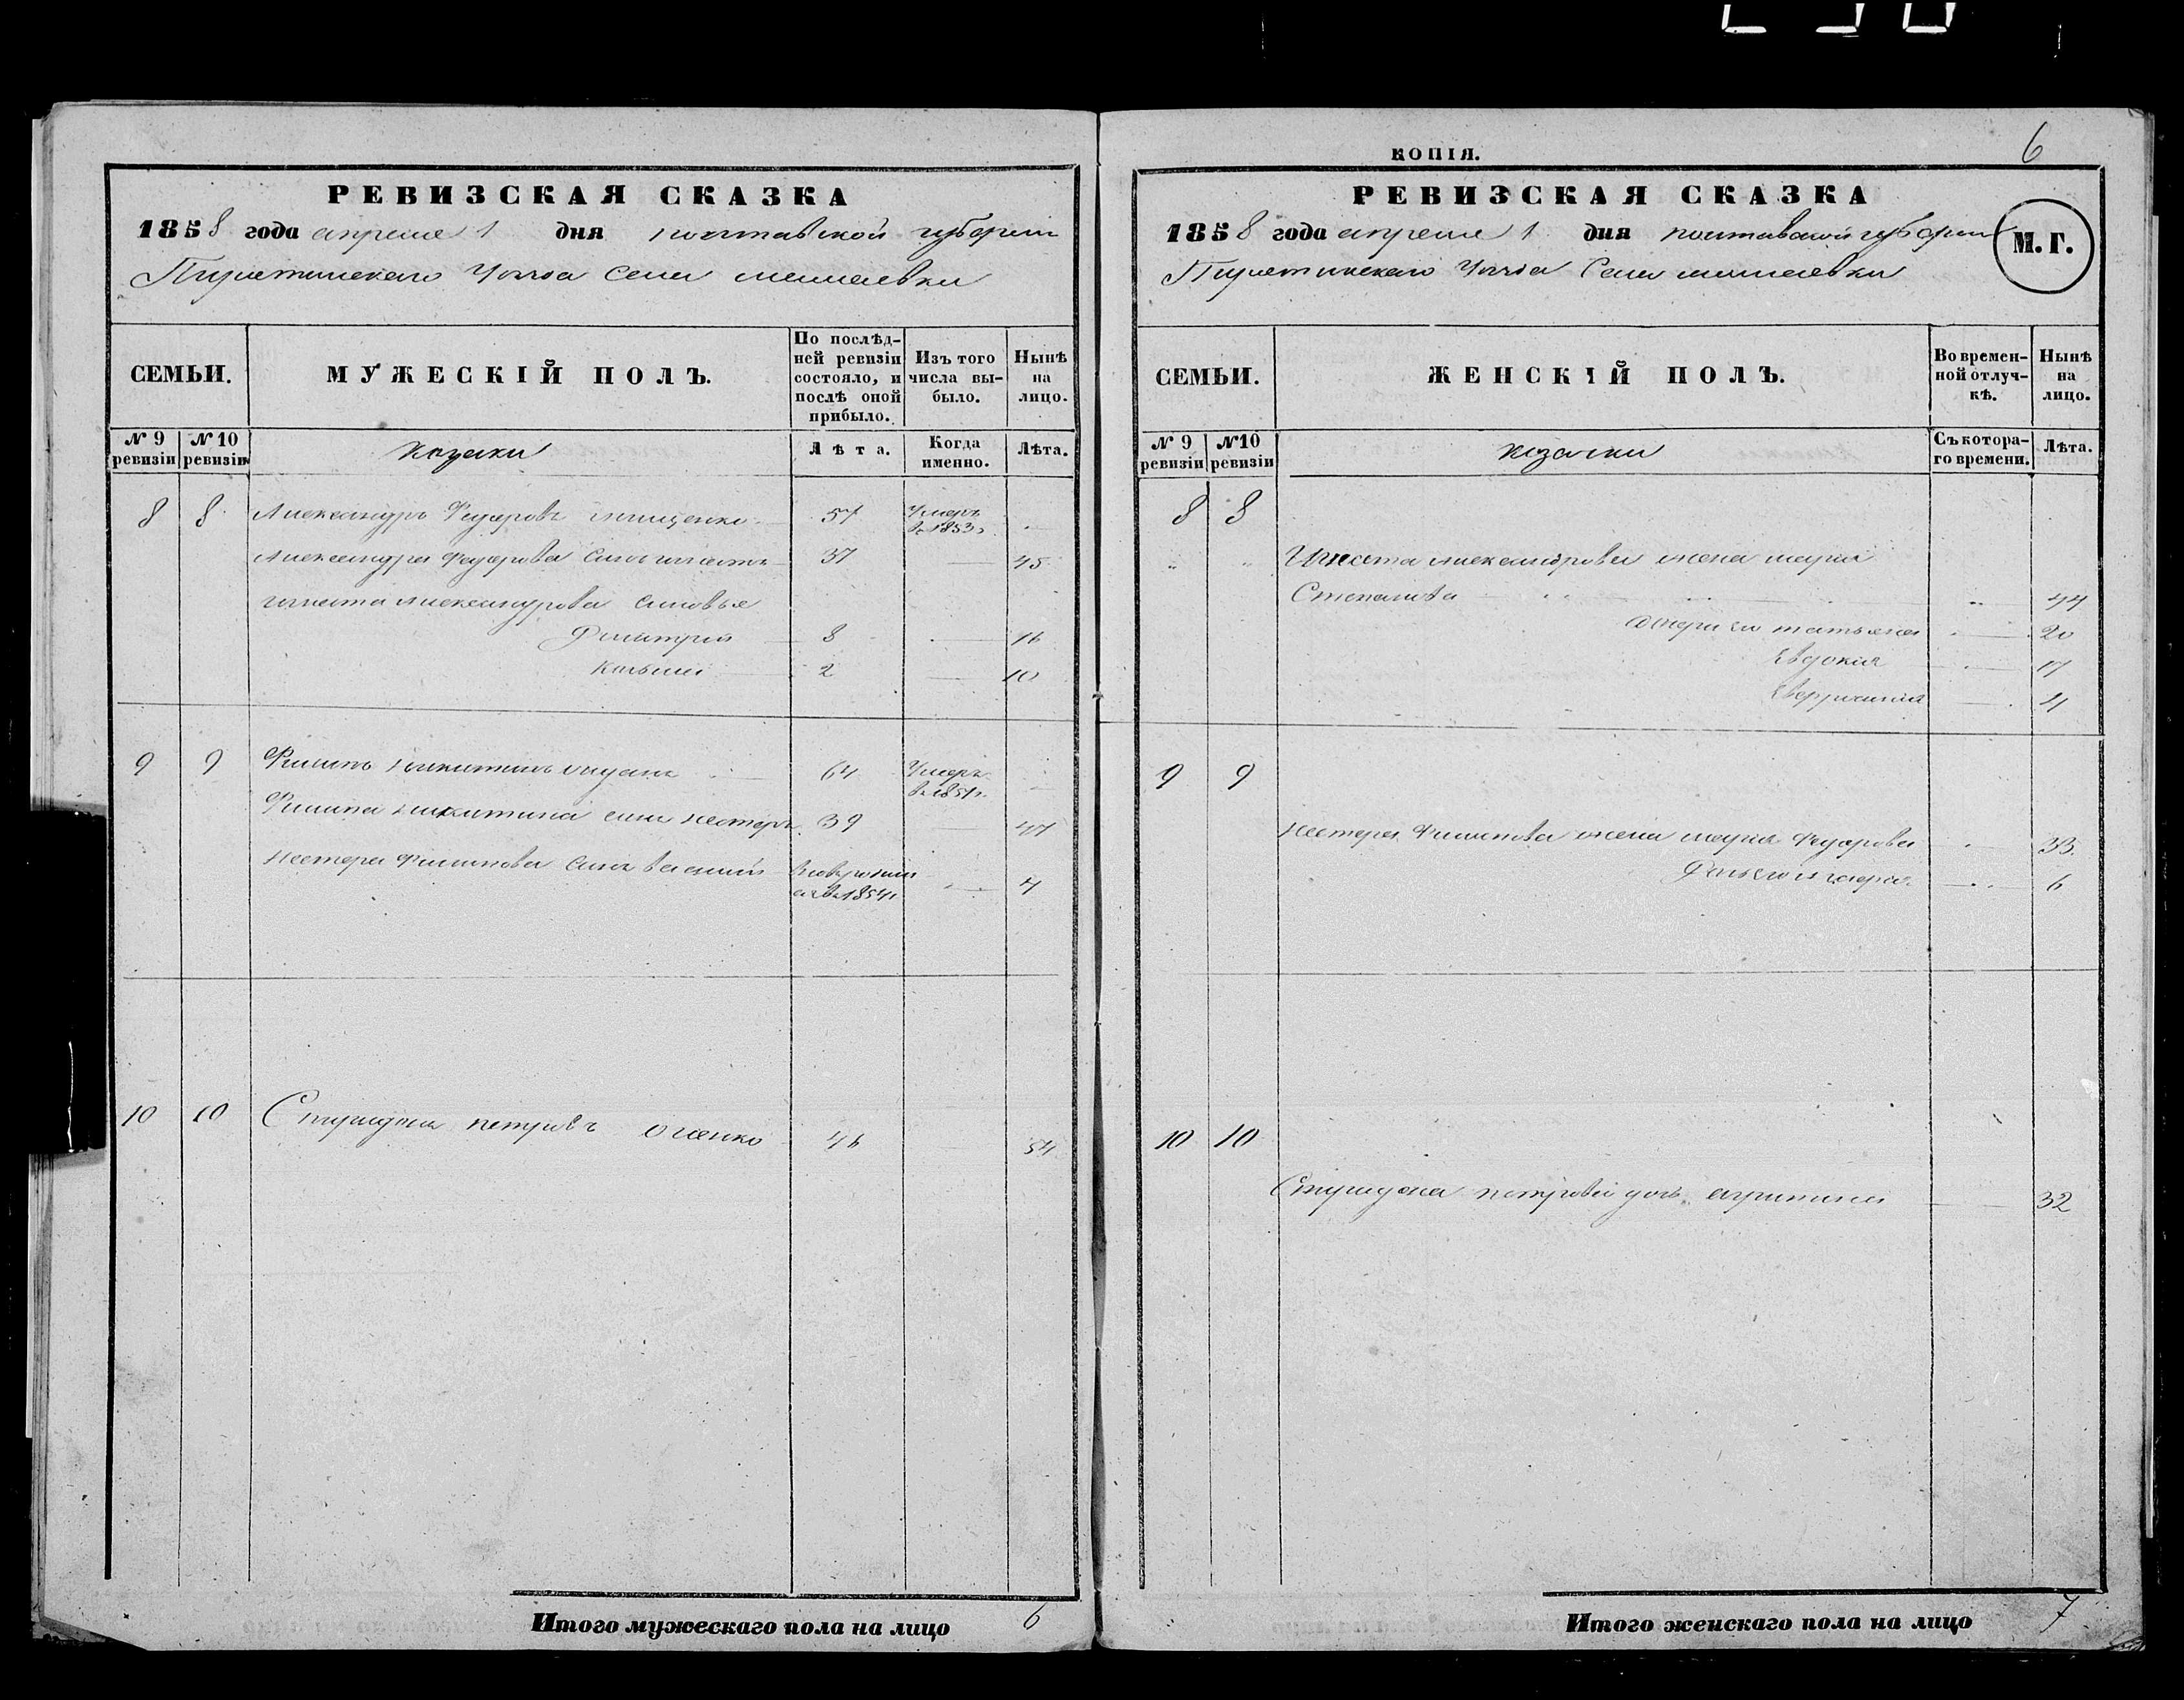 РЕВИЗСКАЯ СКАЗКА
1858 года апреля 1 дня полтавской губернии
Пирятинскаго Уезда Села
СЕМЬИ.
МУЖЕСКІЙ ПОЛЪ.
По послѣд-
ней ревизіи
состояло, и
послѣ оной
прибыло.
Изъ того
числа вы-
было.
Нынѣ
на
лицо.
№ 9
ревизіи
№ 10
ревизіи
козаки
Лѣта.
Когда
именно.
Лѣта.
8 8 Александръ Федоровъ 57 Умеръ
в 1853
Александра Федорова Сынъ игнатъ 37 45
игната Александрова Сыновья
Димитрий 8 16
2 10
9 9 Филипъ Никитинъ 64 Умеръ
Филипа Никитина сынъ нестеръ 39 47
Нестера Филипова Сынъ василий
в 1854 4
10 10 Спиридонъ петровъ 46 54
Итого мужескаго пола на лицо 6
КОПІЯ.
6
РЕВИЗСКАЯ СКАЗКА
1858 года апреля 1 дня полтавской губернии
М. Г.
Пирятинскаго Уезда Села
СЕМЬИ.
ЖЕНСКІЙ ПОЛЪ.
Во времен-
ной отлуч-
кѣ.
Нынѣ
на
лицо.
№ 9
ревизіи
№10
ревизіи
козачки
Съ котора-
го времени.
Лѣта.
8 8
Игната александрова жена мария
Степанова 44
дочери его татьяна 20
Евдокия 17
4
9 9
Нестера Филипова жена мария Федорова 33
6
10 10
Спиридона петрова дочь агрипина 32
Итого женскаго пола на лицо 7